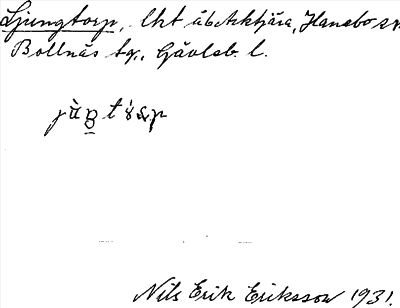 Ljungtorp, lht å Arktjära, Hanebo sn.
Bollnäs tg., Gävleb. l.
Nils Erik Eriksson 1931.